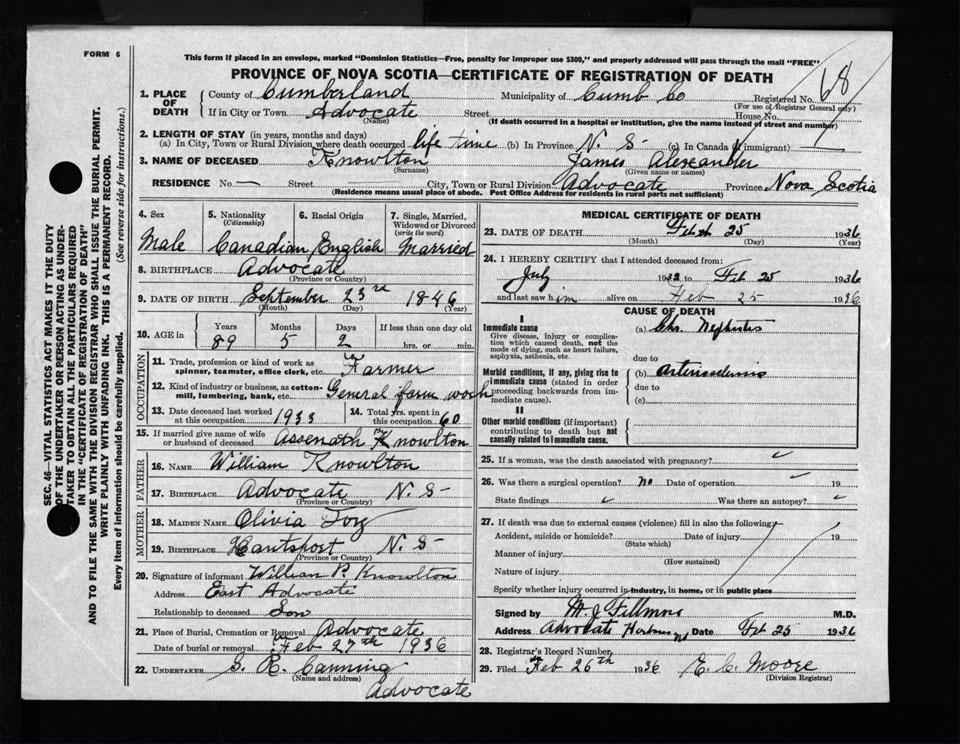 FORM 6
This form if placed in an envelope, marked "Dominion Statistics—Free, penalty for improper use $300," and properly addressed will pass through the mail "FREE"
PROVINCE OF NOVA SCOTIA—CERTIFICATE OF REGISTRATION OF DEATH
1. PLACE OF DEATH County of Cumberland Municipality of Cumb Co Registered No. 68
(For use of Registrar General only)
If in City or Town Advocate Street House No.
(Name) (If death occurred in a hospital or institution, give the name instead of street and number)
2. LENGTH OF STAY (in years, months and days)
(a) In City, Town or Rural Division where death occurred life time (b) In Province N. S- (c) In Canada (if immigrant)
3. NAME OF DECEASED Knowlton James Alexander
(Surname) (Given name or names)
RESIDENCE No. — Street City, Town or Rural Division Advocate Province Nova Scotia
(Residence means usual place of abode. Post Office Address for residents in rural parts not sufficient)
SEC. 46—VITAL STATISTICS ACT MAKES IT THE DUTY
OF THE UNDERTAKER OR PERSON ACTING AS UNDER-
TAKER TO OBTAIN ALL THE PARTICULARS REQUIRED
IN THE "CERTIFICATE OF REGISTRATION OF DEATH"
AND TO FILE THE SAME WITH THE DIVISION REGISTRAR WHO SHALL ISSUE THE BURIAL PERMIT.
WRITE PLAINLY WITH UNFADING INK. THIS IS A PERMANENT RECORD.
Every item of information should be carefully supplied. (See reverse side for instructions.)
4. Sex 5. Nationality (Citizenship) 6. Racial Origin 7. Single, Married, Widowed or Divorced (write the word)
Male Canadian English Married
8. BIRTHPLACE Advocate
(Province or Country)
9. DATE OF BIRTH September 23rd 1846
(Month) (Day) (Year)
10. AGE in Years Months Days If less than one day old
89 5 2 hrs. or min.
OCCUPATION
11. Trade, profession or kind of work as spinner, teamster, office clerk, etc. Farmer
12. Kind of industry or business, as cotton-mill, lumbering, bank, etc. General farm work
13. Date deceased last worked at this occupation 1933 14. Total yrs. spent in this occupation 60
15. If married give name of wife or husband of deceased Assenath Knowlton
FATHER
16. NAME William Knowlton
17. BIRTHPLACE Advocate N. S-
(Province or Country)
MOTHER
18. MAIDEN NAME Olivia
19. BIRTHPLACE Hantsport N. S-
(Province or Country)
20. Signature of informant William P. Knowlton
Address East Advocate
Relationship to deceased Son
21. Place of Burial, Cremation or Removal Advocate
Date of burial or removal Feb 27th 1936
22. UNDERTAKER S. R. Canning
(Name and address)
Advocate
MEDICAL CERTIFICATE OF DEATH
23. DATE OF DEATH Feb 25 1936
(Month) (Day) (Year)
24. I HEREBY CERTIFY that I attended deceased from:
July 1932 to Feb 25 1936
and last saw him alive on Feb 25 1936
CAUSE OF DEATH
I
Immediate cause (a) Chr. Nephritis
Give disease, injury or complication which caused death, not the mode of dying, such as heart failure, asphyxia, asthenia, etc.
due to
Morbid conditions, if any, giving rise to immediate cause (stated in order proceeding backwards from immediate cause). (b) arteriosclerosis
due to
(c)
II
Other morbid conditions (if important) contributing to death but not causally related to immediate cause.
25. If a woman, was the death associated with pregnancy?
26. Was there a surgical operation? No Date of operation 19
State findings Was there an autopsy?
27. If death was due to external causes (violence) fill in also the following:
Accident, suicide or homicide? Date of injury 19
(State which)
Manner of injury
(How sustained)
Nature of injury
Specify whether injury occurred in industry, in home, or in public place
Signed by M. J. Fillmore M.D.
Address Advocate Harbour NS Date Feb 25 1936
28. Registrar's Record Number
29. Filed Feb 26th 1936 E. C. Moore
(Division Registrar)